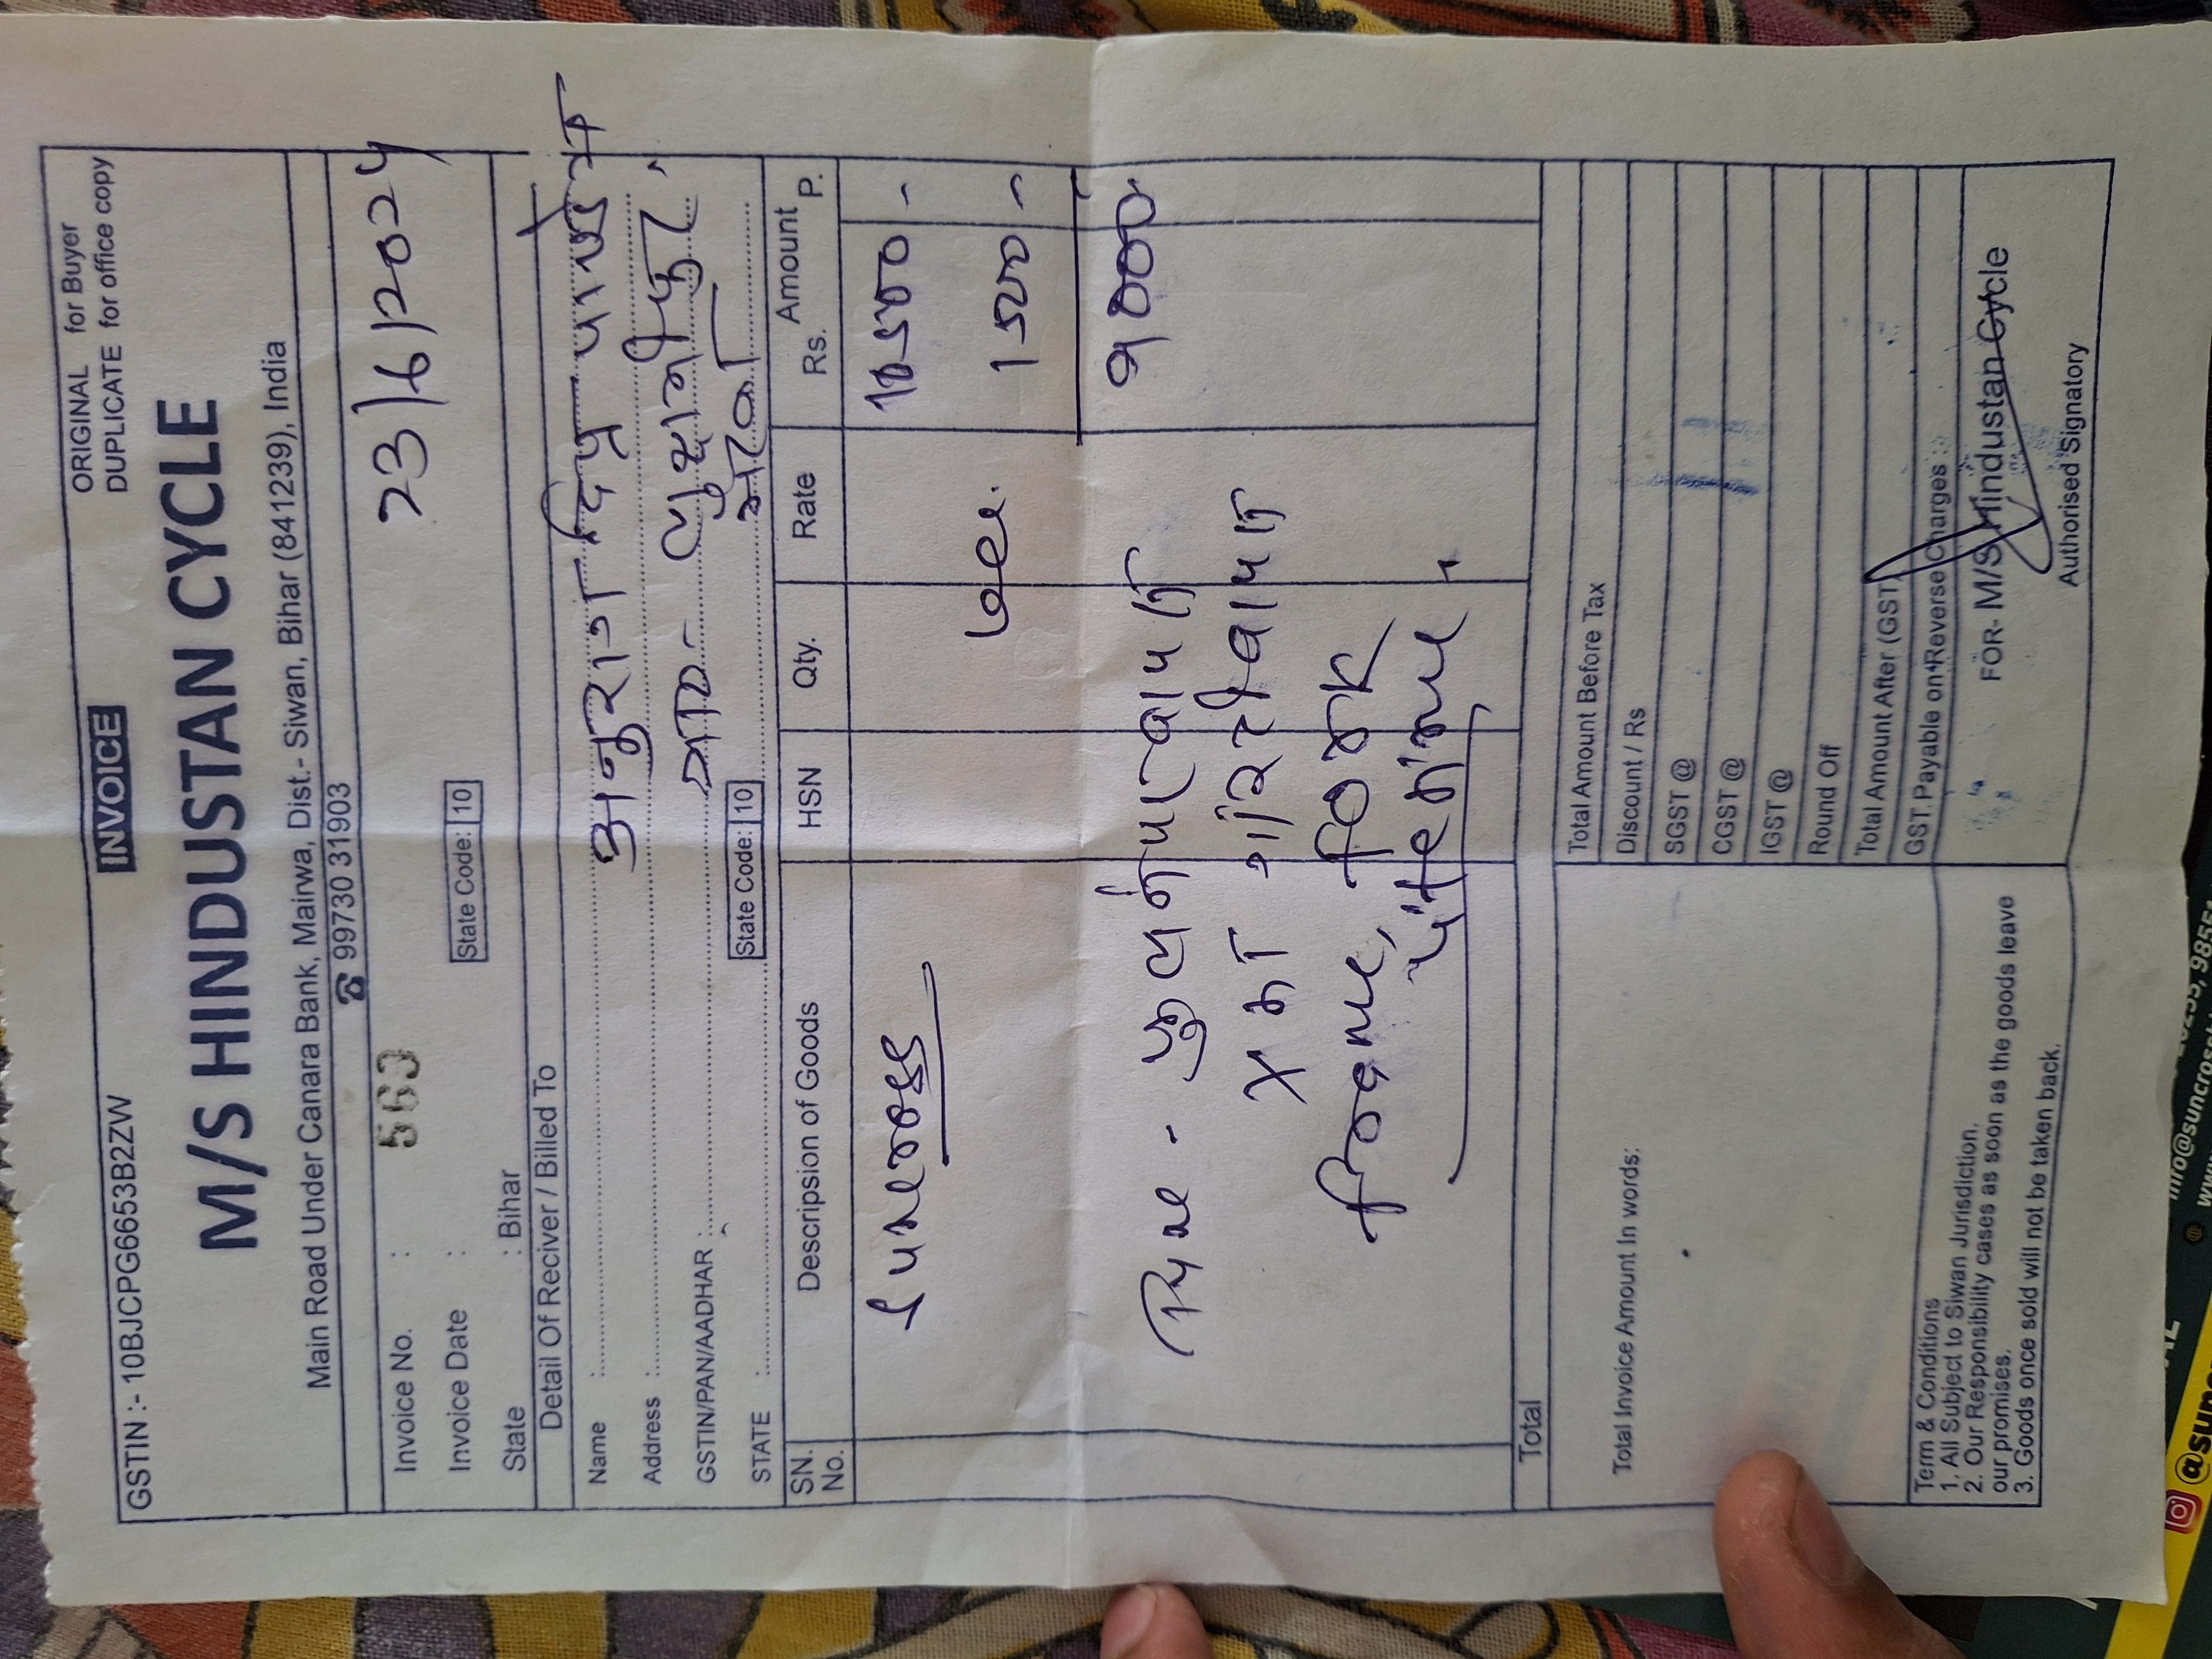 GSTIN :- 10BJCPG6653B2ZW
INVOICE
ORIGINAL for Buyer
DUPLICATE for office copy
M/S HINDUSTAN CYCLE
Main Road Under Canara Bank, Mairwa, Dist.- Siwan, Bihar (841239), India
☎ 99730 31903
Invoice No. : 563
23/6/2024
Invoice Date :
State Code: 10
State : Bihar
Detail Of Reciver / Billed To
Name : अनुराग दिप
Address :
GSTIN/PAN/AADHAR :
STATE :
State Code: 10
SN. No. Descripsion of Goods HSN Qty. Rate Amount Rs. P.
Suncross 10500 -
Les. 1500 -
9000
frame, fork
Total
Total Amount Before Tax
Total Invoice Amount In words:
Discount / Rs
SGST @
CGST @
IGST @
Round Off
Total Amount After (GST)
GST Payable on Reverse Charges :
Term & Conditions
1. All Subject to Siwan Jurisdiction.
2. Our Responsibility cases as soon as the goods leave
our promises.
3. Goods once sold will not be taken back.
FOR- M/S Hindustan Cycle
Authorised Signatory